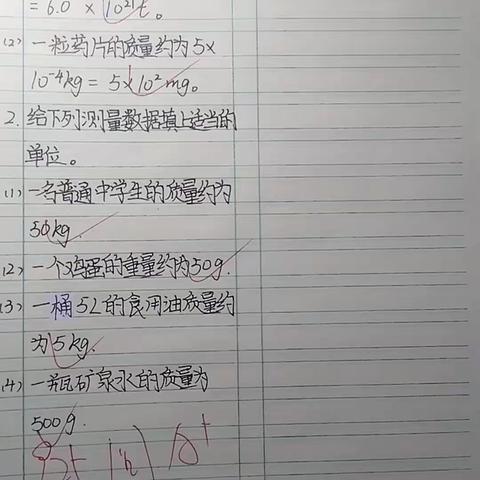 = 6.0 × 10²¹t。
(2) 一粒药片的质量约为5×
10⁻⁴kg = 5×10²mg。
2. 给下列测量数据填上适当的
单位。
(1) 一名普通中学生的质量约为
50kg.
(2) 一个鸡蛋的重量约为50g.
(3) 一桶5L的食用油质量约
为5kg.
(4) 一瓶矿泉水的质量为
500g.